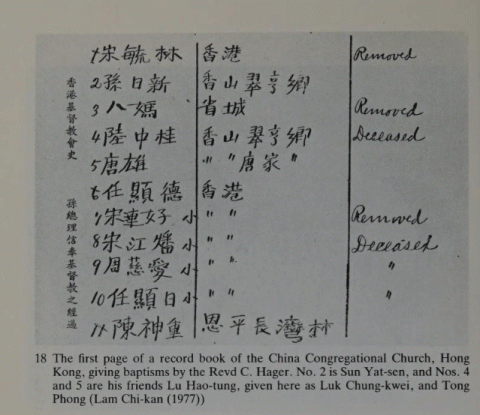 香港基督教會史
孫總理信奉基督教之經過
1 宋毓林 香港 Removed
2 孫日新 香山翠亨鄉
3 八媽 省城 Removed
4 陸中桂 香山翠亨鄉 Deceased
5 唐雄 " " 唐家 "
6 任顯德 香港
7 宋華好 小 " " Removed
8 宋江 小 " " Deceased
9 周慈愛 小 " " "
10 任顯日 小 " " "
11 陳神重 恩平長灣林
18 The first page of a record book of the China Congregational Church, Hong
Kong, giving baptisms by the Revd C. Hager. No. 2 is Sun Yat-sen, and Nos. 4
and 5 are his friends Lu Hao-tung, given here as Luk Chung-kwei, and Tong
Phong (Lam Chi-kan (1977))